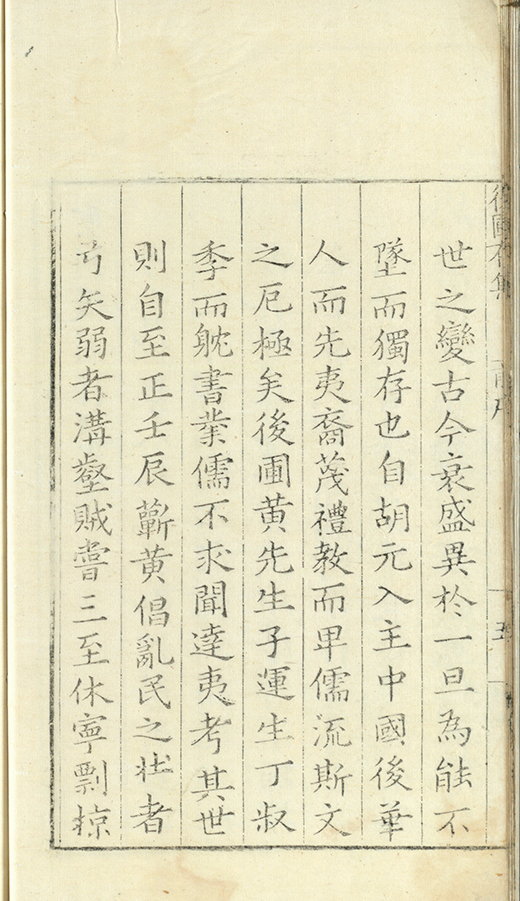 世之變古今衰盛異於一旦為能不
墜而獨存也自胡元入主中國後華
人而先夷裔蔑禮教而卑儒流斯文
之厄極矣後圃黄先生子運生丁叔
季而躭書業儒不求聞達夷考其世
則自至正壬辰蘄黄倡亂民之壯者
弓矢弱者溝壑賊嘗三至休寧剽掠